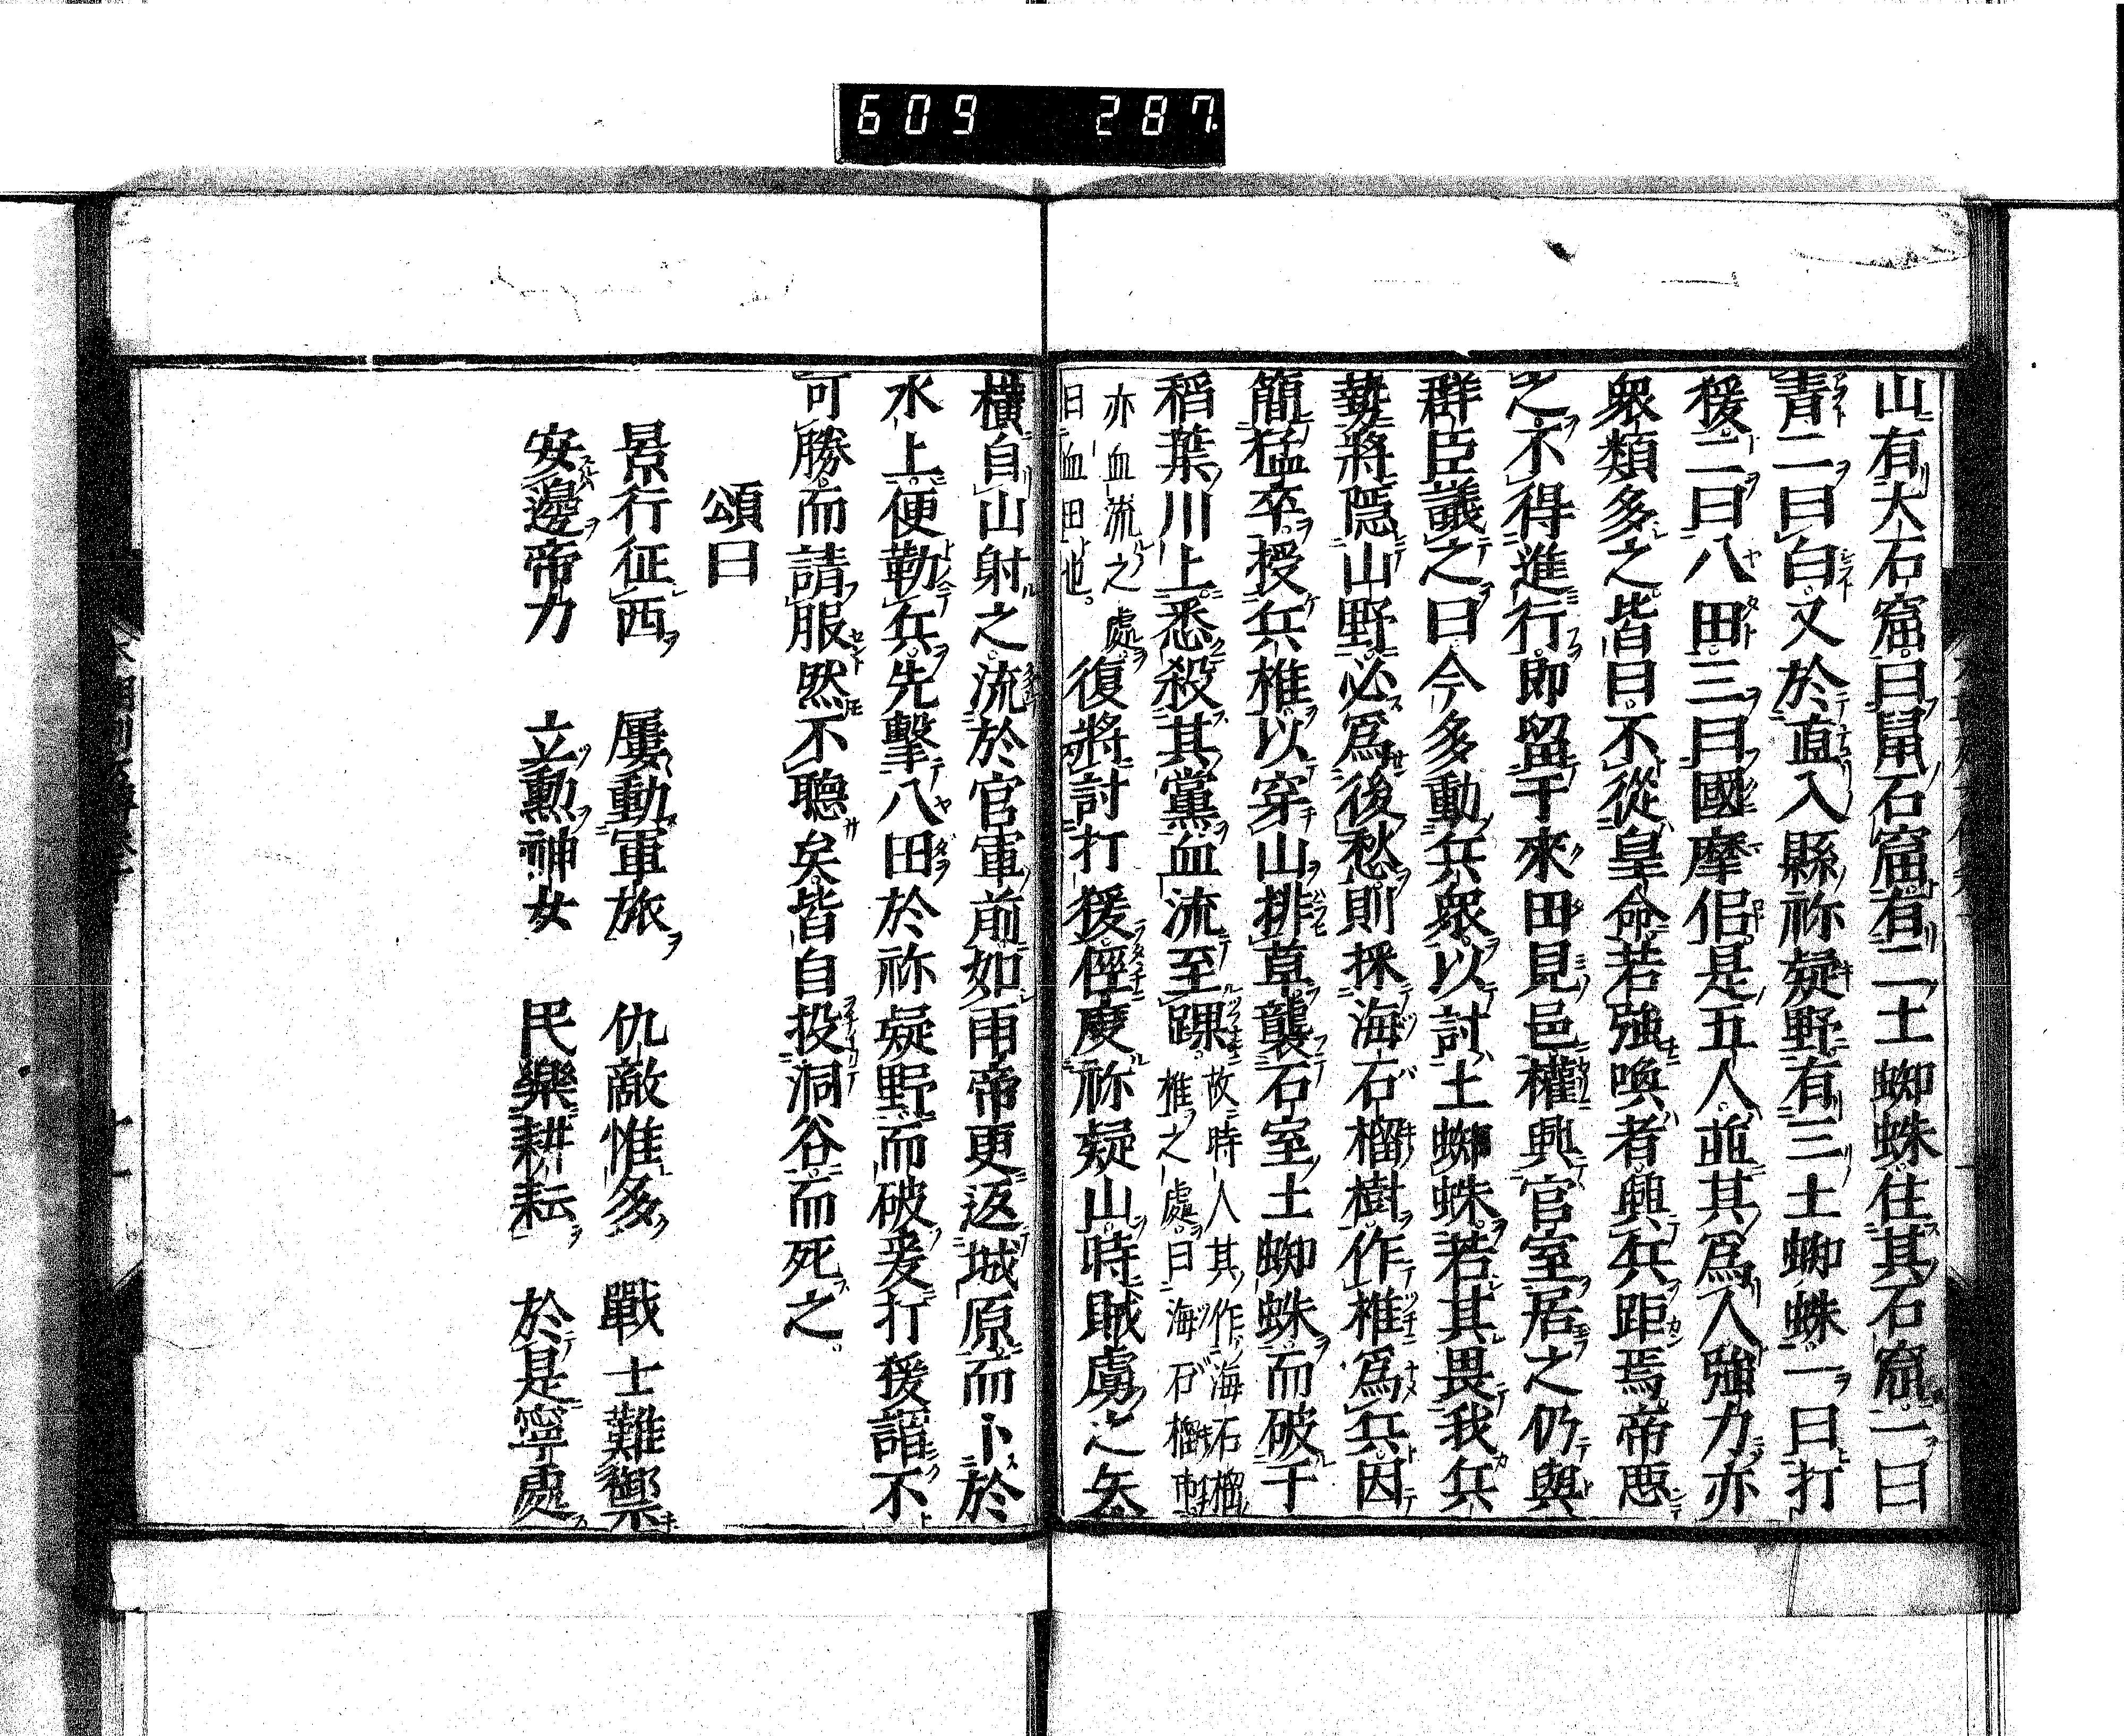 609 287
山有大石窟曰鼠石窟有二土蜘蛛住其石窟一曰
青二曰白又於直入縣祢疑野有三土蜘蛛一曰打
猨二曰八田三曰國摩侶是五人並其爲人強力亦
衆類多之皆曰不從皇命若強喚者興兵距焉帝悪
之不得進行即留于來田見邑權興官室居之仍與
群臣議之曰今多動兵衆以討土蜘蛛若其畏我兵
勢將隱山野必爲後愁則採海石榴樹作椎爲兵因
簡猛卒授兵椎以穿山排草襲石室土蜘蛛而破于
稻葉川上悉殺其黨血流至踝故時人其作海石榴
椎之處曰海石榴市
亦血流之處
曰血田也
復將討打猨徑度祢疑山時賊虜之矢
橫自山射之流於官軍前如雨帝更返城原而卜於
水上便勒兵先擊八田於祢疑野而破爰打猨謂不
可勝而請服然不聽矣皆自投洞谷而死之
頌曰
景行征西 屢動軍旅 仇敵惟多 戰士難禦
安邊帝力 立勲神女 民樂耕耘 於是寧處